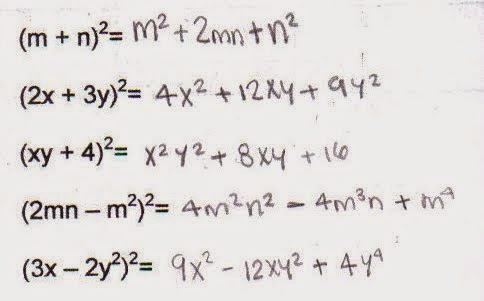 (m + n)²= m² + 2mn + n²
(2x + 3y)²= 4x² + 12xy + 9y²
(xy + 4)²= x²y² + 8xy + 16
(2mn – m²)²= 4m²n² - 4m³n + m⁴
(3x – 2y²)²= 9x² - 12xy² + 4y⁴